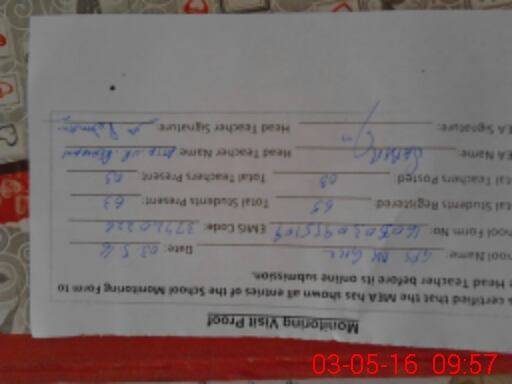 Monitoring Visit Proof
s certified that the MEA has shown all entries of the School Monitoring Form to
e Head Teacher before its online submission.
hool Name: GPS Date: 03.5.16
hool Form No: EMIS Code: 37720222
tal Students Registered: 65 Total Students Present: 63
tal Teachers Posted: 03 Total Teachers Present: 03
EA Name: Head Teacher Name:
EA Signature: Head Teacher Signature:
03-05-16 09:57